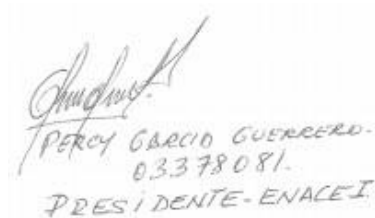 PERCY GARCIA GUERRERO.
03378081.
PRESIDENTE-ENACEI